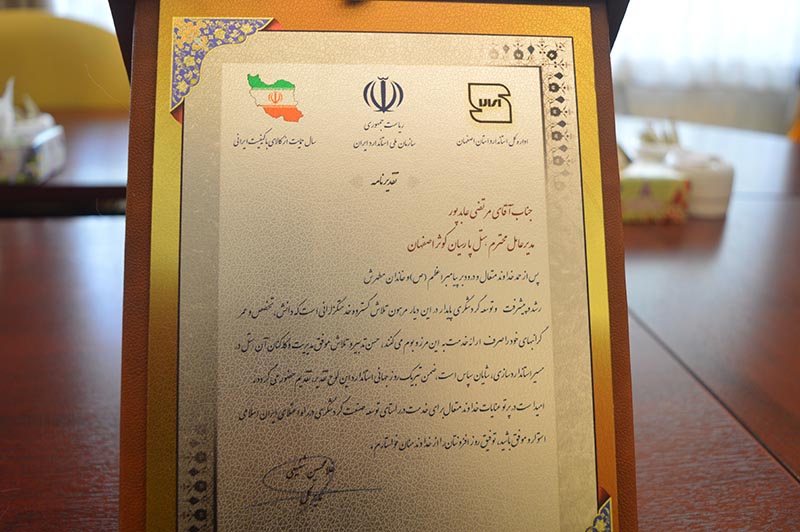 ریاست جمهوری
سازمان ملی استاندارد ایران
اداره کل استاندارد استان اصفهان
سال حمایت از کالای با کیفیت ایرانی
تقدیرنامه
جناب آقای مرتضی عابدپور
مدیرعامل محترم هتل پارسیان کوثر اصفهان
پس از حمد خداوند متعال و درود بر پیامبر اعظم (ص) و خاندان مطهرش
رشد و پیشرفت و توسعه گردشگری پایدار در این دیار مرهون تلاش گسترده خدمتگزارانی است که دانش، تخصص و عمر
گرانبهای خود را صرف ارائه خدمت به این مرز و بوم می کنند، حسن تدبیر و تلاش موفق مدیریت و کارکنان آن هتل در
مسیر استانداردسازی، شایان سپاس است، ضمن تبریک روز جهانی استاندارد این لوح تقدیر، تقدیم حضور می گردد.
امید است در پرتو عنایات خداوند متعال برای خدمت در راستای توسعه صنعت گردشگری در راه اعتلای ایران اسلامی
استوار و موفق باشید، توفیق روز افزونتان را از خداوند منان خواستارم.
غلامحسین شفیعی
مدیر کل